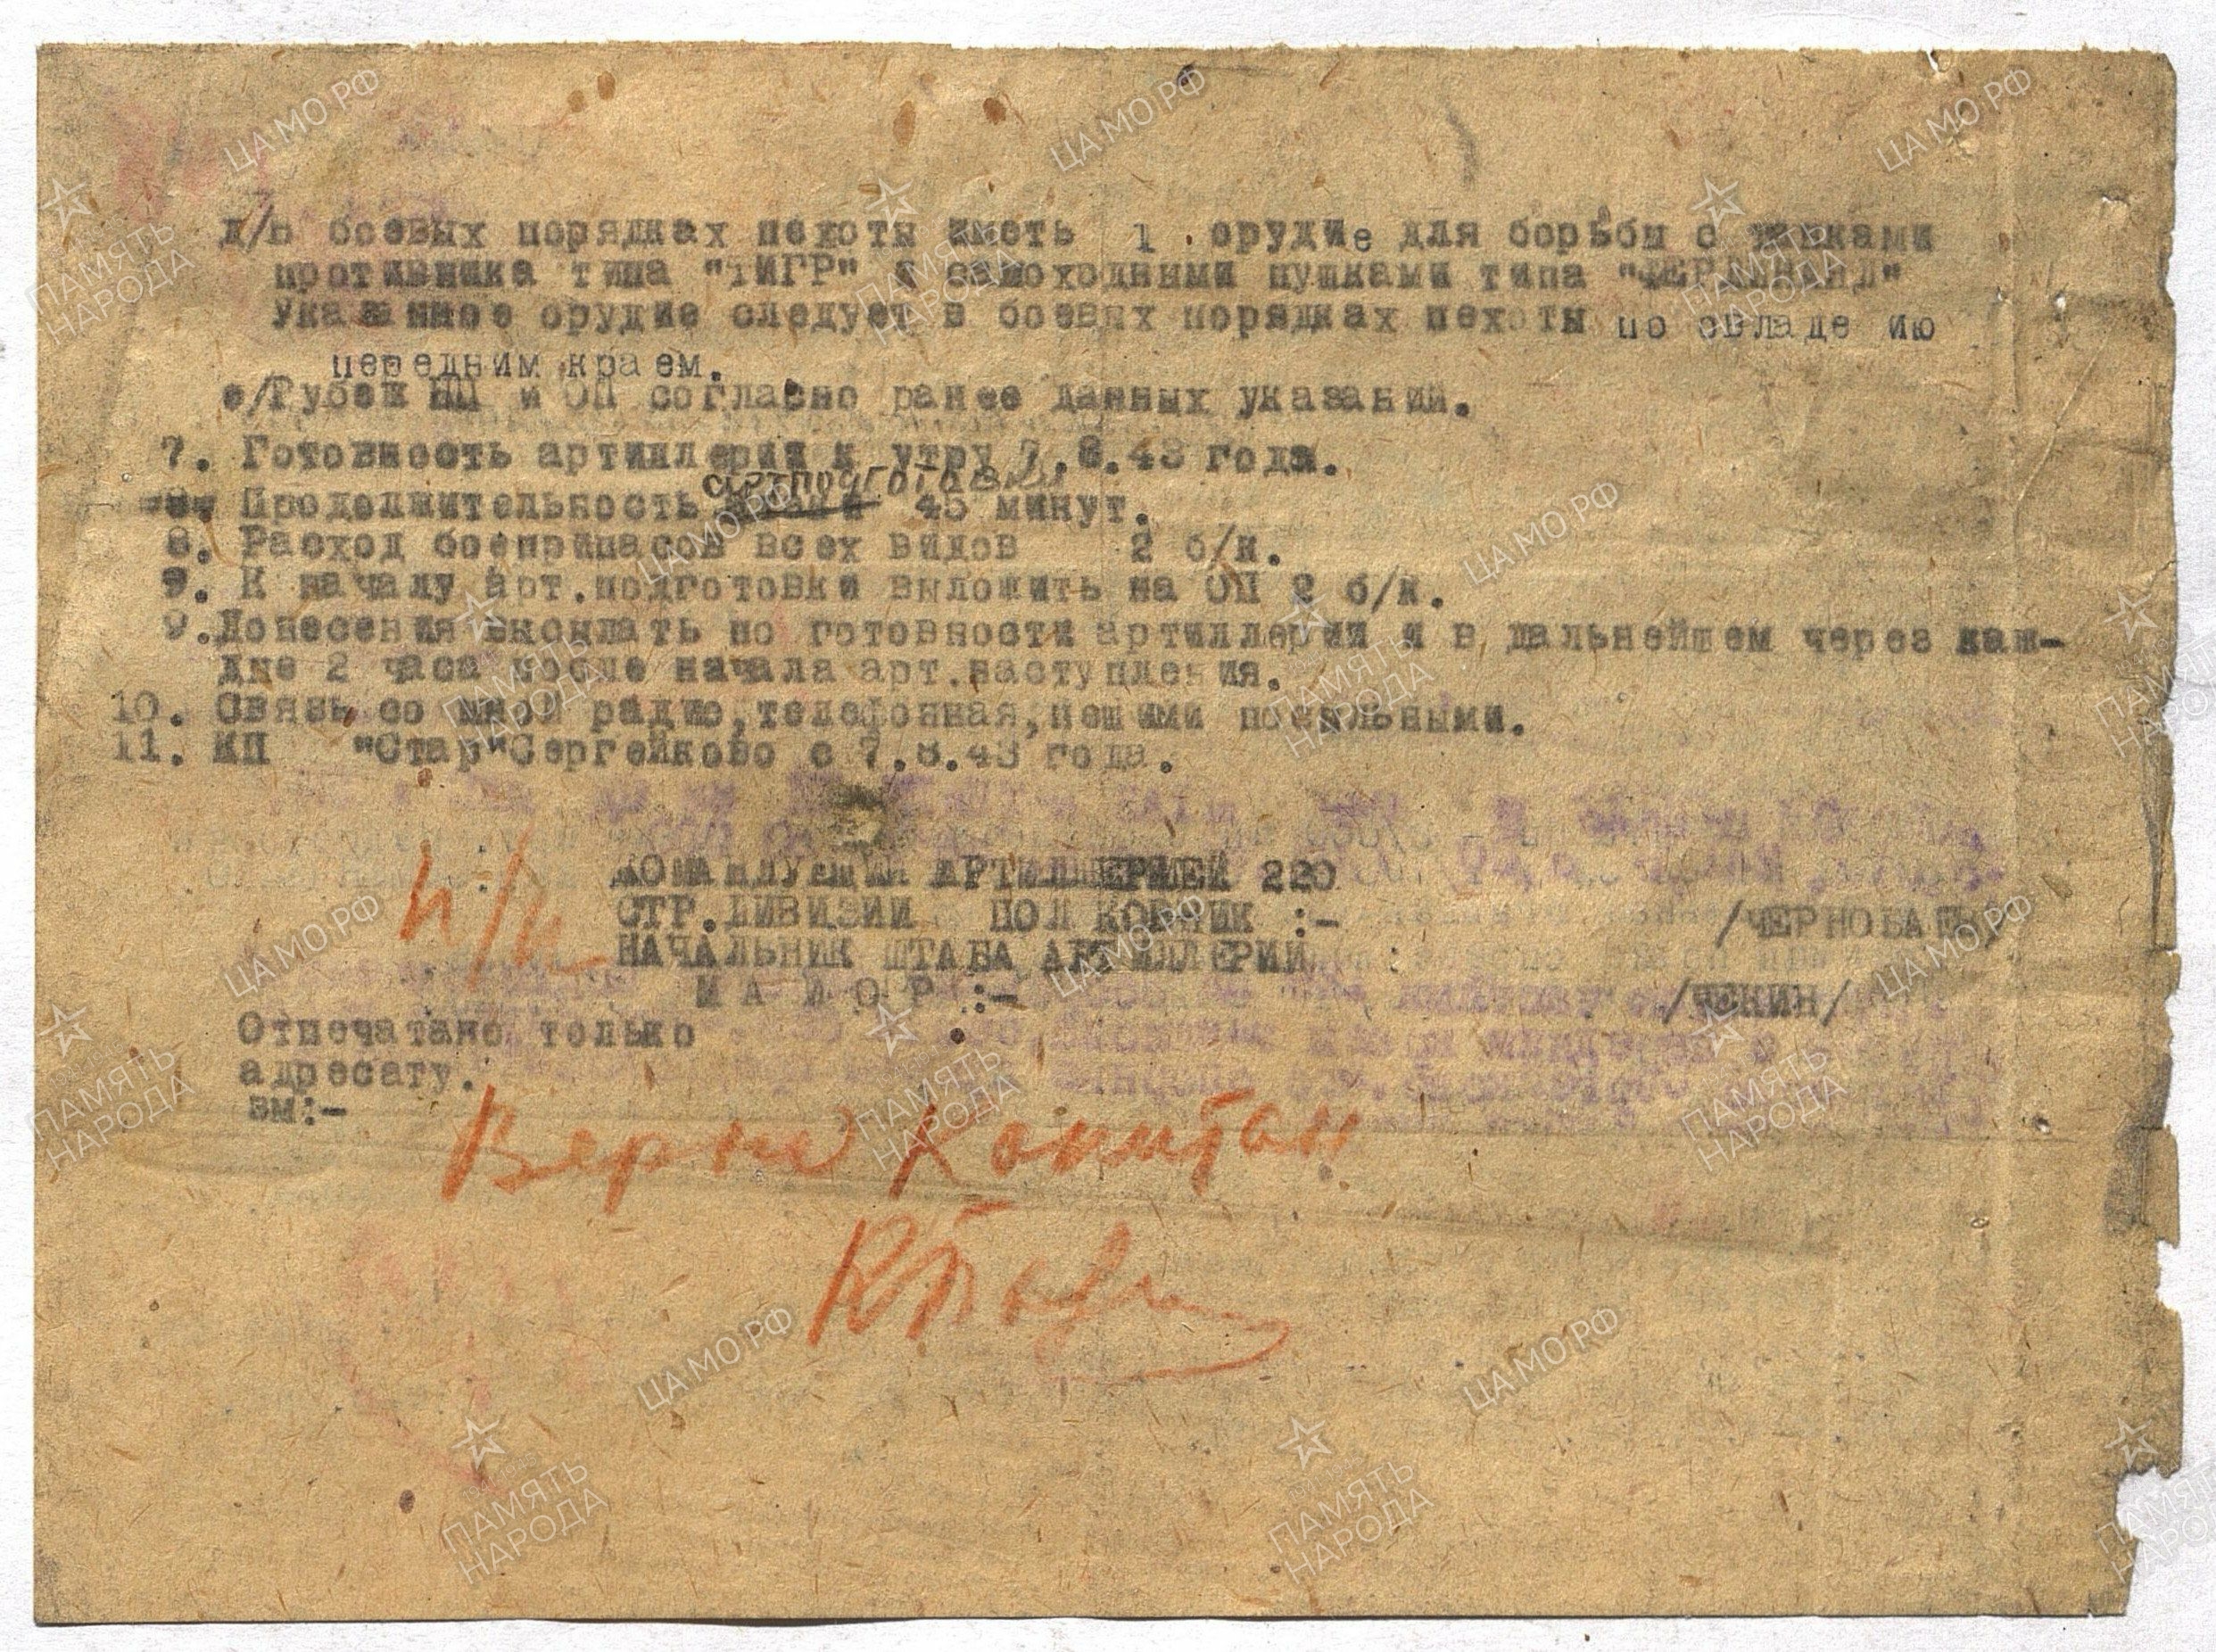 д/в боевых порядках пехоты иметь 1 орудие для борьбы с танками
противника типа "ТИГР" и самоходными пушками типа "ФЕРДИНАНД"
Указанное орудие следует в боевых порядках пехоты по овладе ию
передним краем.
е/Рубеж НП и ОП согласно ранее данных указаний.
7. Готовность артиллерии к утру 7.8.43 года.
артподготовки
Продолжительность 45 минут.
8. Расход боеприпасов всех видов 2 б/к.
9. К началу арт.подготовки выложить на ОП 2 б/к.
9.Донесения высылать по готовности артиллерии и в дальнейшем через каж-
дые 2 часа после начала арт.наступления.
10. Связь со мной радио,телефонная,пешими посыльными.
11. КП "Стар"Сергейково с 7.8.43 года.
КОМАНДУЮЩИЙ АРТИЛЛЕРИЕЙ 220
СТР.ДИВИЗИИ ПОЛКОВНИК :- /ЧЕРНОБАЕВ/
п/п
НАЧАЛЬНИК ШТАБА АРТИЛЛЕРИИ
М А Й О Р :- /ЧЕКИН/
Отпечатано только
адресату.
вм:-
Верно Капитан
ЦА МО РФ
ПАМЯТЬ
НАРОДА